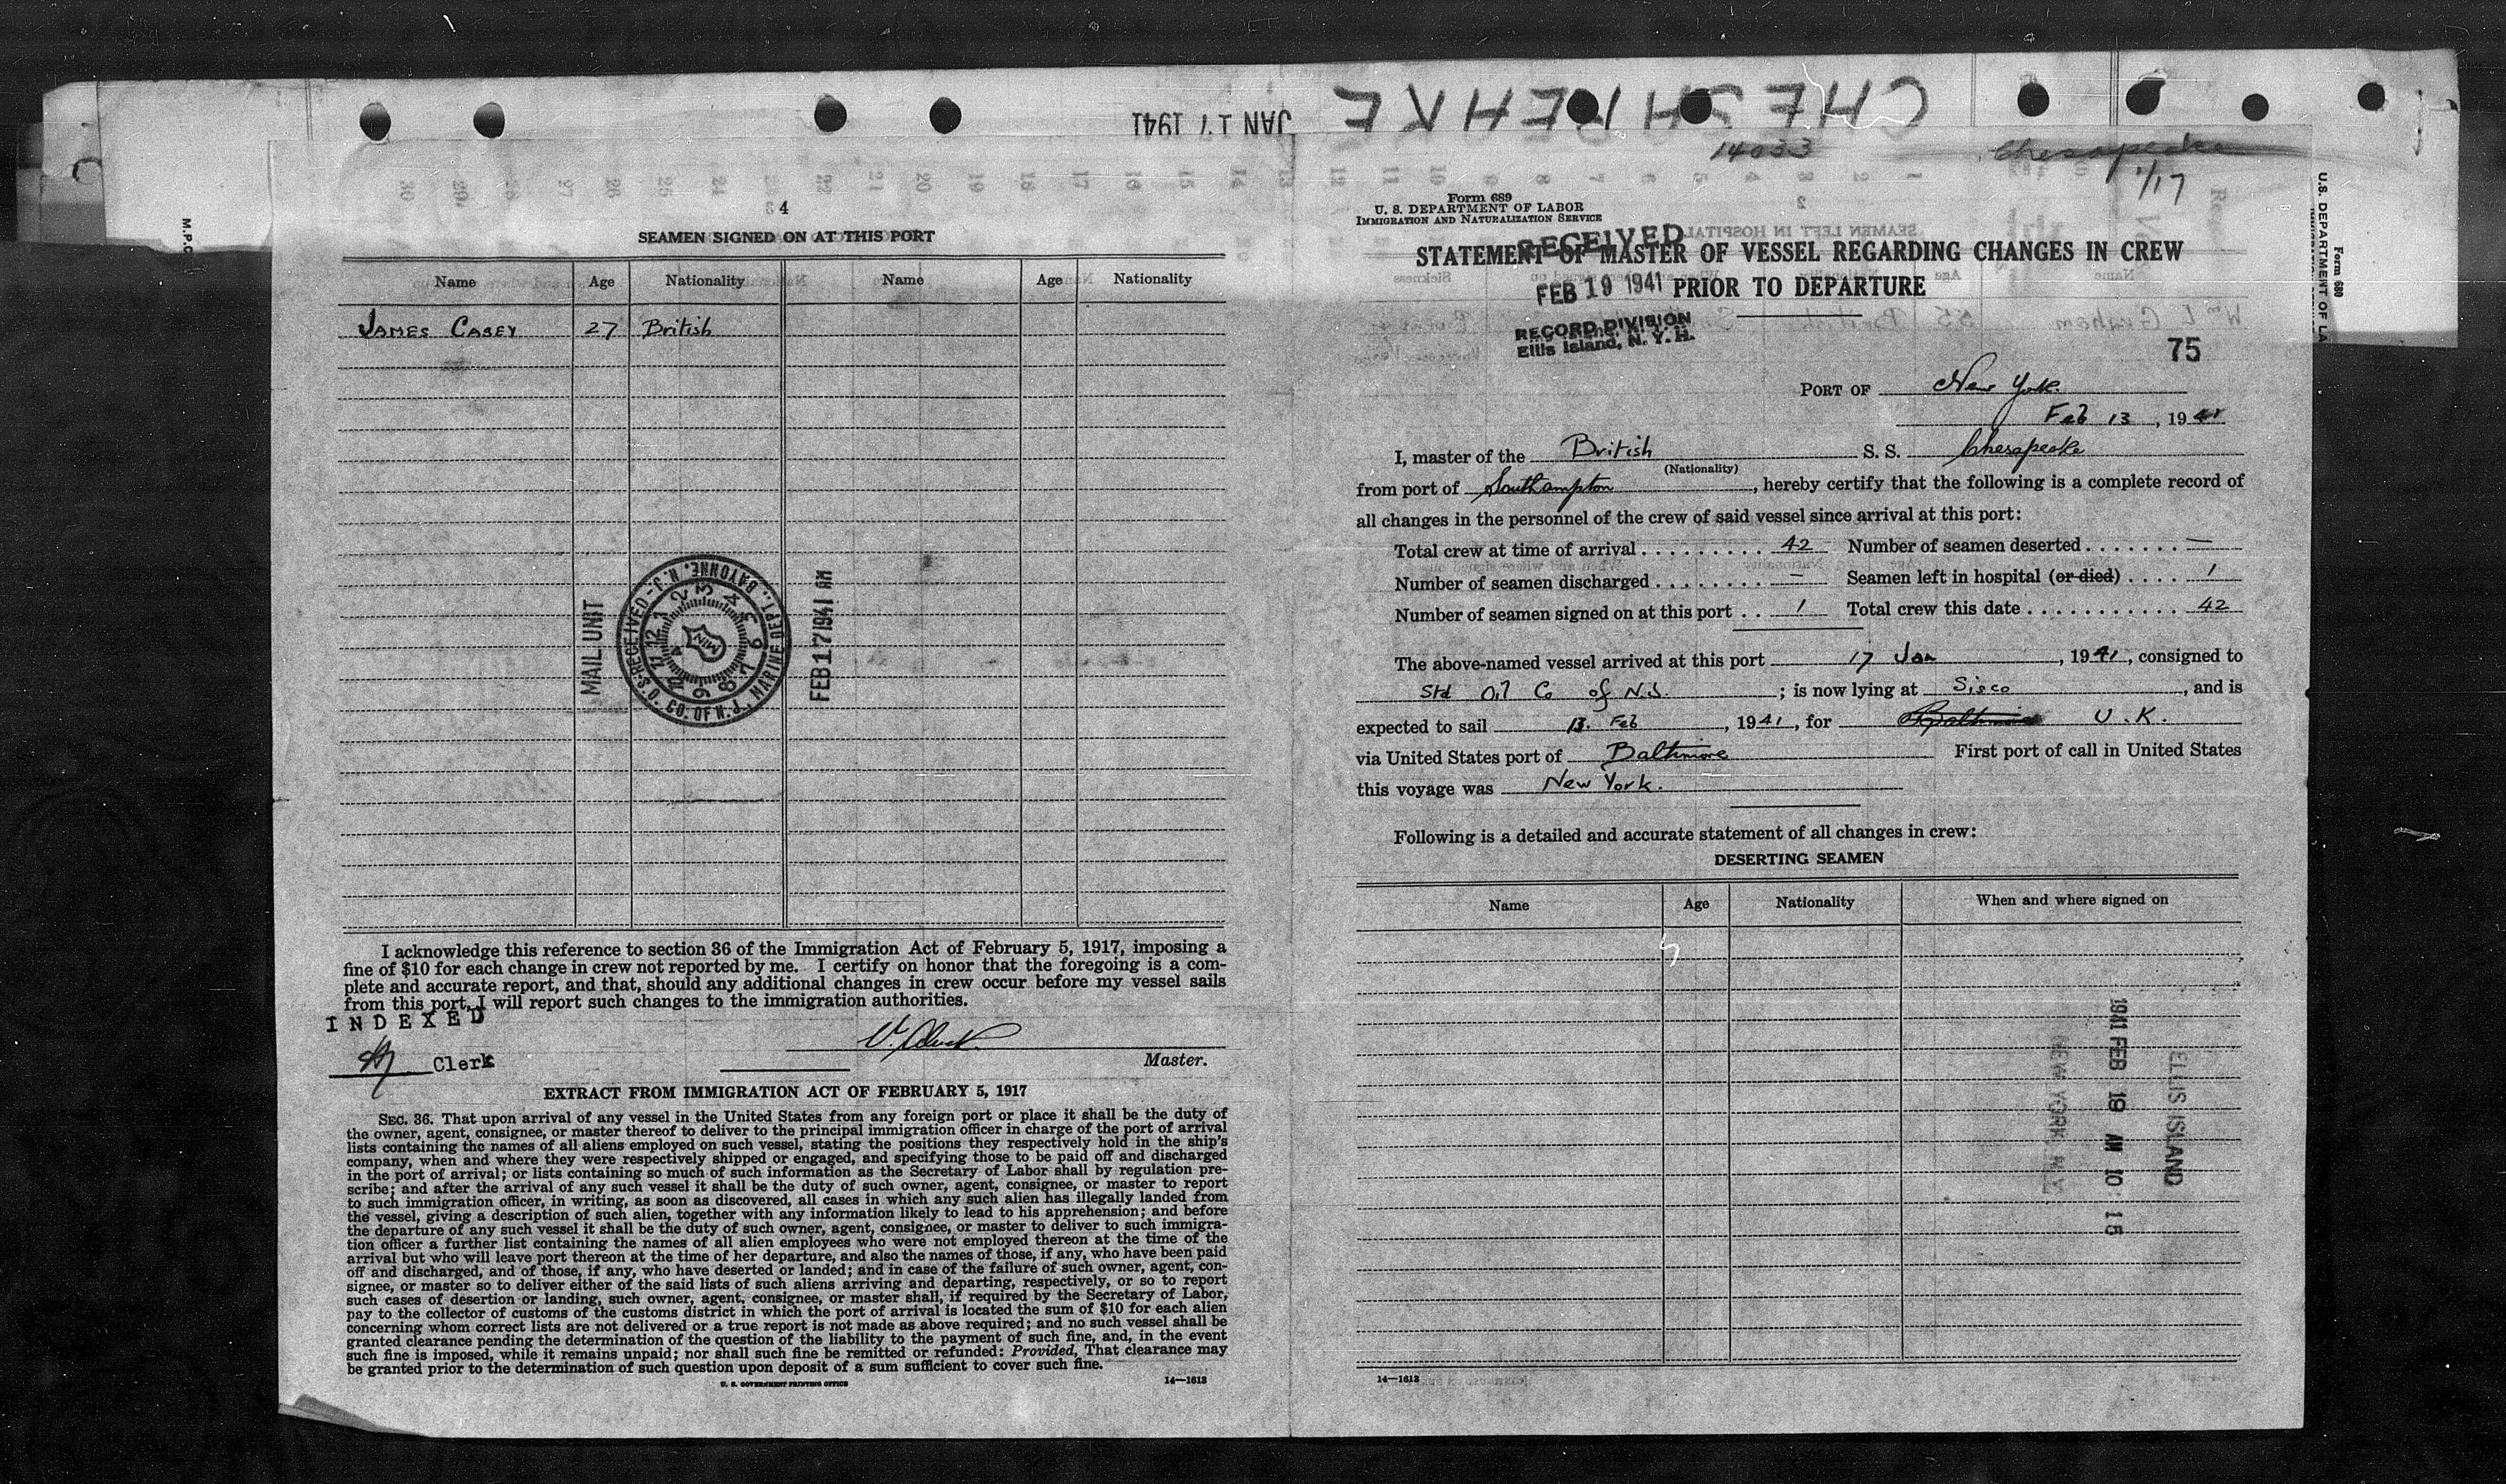 CHESAPEAKE
JAN 17 1941
14033
Chesapeake
1/17
4
SEAMEN SIGNED ON AT THIS PORT
Name Age Nationality Name Age Nationality
JAMES CASEY 27 British
MAIL UNIT
RECEIVED - S. O. CO. OF N. J., MARINE DEPT., BAYONNE, N. J.
FEB 17 1941 AM
I acknowledge this reference to section 36 of the Immigration Act of February 5, 1917, imposing a
fine of $10 for each change in crew not reported by me. I certify on honor that the foregoing is a com-
plete and accurate report, and that, should any additional changes in crew occur before my vessel sails
from this port, I will report such changes to the immigration authorities.
INDEXED
Clerk
Master.
EXTRACT FROM IMMIGRATION ACT OF FEBRUARY 5, 1917
SEC. 36. That upon arrival of any vessel in the United States from any foreign port or place it shall be the duty of
the owner, agent, consignee, or master thereof to deliver to the principal immigration officer in charge of the port of arrival
lists containing the names of all aliens employed on such vessel, stating the positions they respectively hold in the ship's
company, when and where they were respectively shipped or engaged, and specifying those to be paid off and discharged
in the port of arrival; or lists containing so much of such information as the Secretary of Labor shall by regulation pre-
scribe; and after the arrival of any such vessel it shall be the duty of such owner, agent, consignee, or master to report
to such immigration officer, in writing, as soon as discovered, all cases in which any such alien has illegally landed from
the vessel, giving a description of such alien, together with any information likely to lead to his apprehension; and before
the departure of any such vessel it shall be the duty of such owner, agent, consignee, or master to deliver to such immigra-
tion officer a further list containing the names of all alien employees who were not employed thereon at the time of the
arrival but who will leave port thereon at the time of her departure, and also the names of those, if any, who have been paid
off and discharged, and of those, if any, who have deserted or landed; and in case of the failure of such owner, agent, con-
signee, or master so to deliver either of the said lists of such aliens arriving and departing, respectively, or so to report
such cases of desertion or landing, such owner, agent, consignee, or master shall, if required by the Secretary of Labor,
pay to the collector of customs of the customs district in which the port of arrival is located the sum of $10 for each alien
concerning whom correct lists are not delivered or a true report is not made as above required; and no such vessel shall be
granted clearance pending the determination of the question of the liability to the payment of such fine, and, in the event
such fine is imposed, while it remains unpaid; nor shall such fine be remitted or refunded: Provided, That clearance may
be granted prior to the determination of such question upon deposit of a sum sufficient to cover such fine.
U. S. GOVERNMENT PRINTING OFFICE 14—1613
Form 689
U. S. DEPARTMENT OF LABOR
IMMIGRATION AND NATURALIZATION SERVICE
STATEMENT OF MASTER OF VESSEL REGARDING CHANGES IN CREW
PRIOR TO DEPARTURE
RECEIVED
FEB 19 1941
RECORD DIVISION
Ellis Island, N. Y. H.
75
PORT OF New York
Feb 13, 1941
I, master of the British S. S. Chesapeake
(Nationality)
from port of Southampton, hereby certify that the following is a complete record of
all changes in the personnel of the crew of said vessel since arrival at this port:
Total crew at time of arrival . . . . . . . . . 42 Number of seamen deserted . . . . . . . —
Number of seamen discharged . . . . . . . . — Seamen left in hospital (or died) . . . . 1
Number of seamen signed on at this port . . 1 Total crew this date . . . . . . . . . . . 42
The above-named vessel arrived at this port 17 Jan, 1941, consigned to
Std Oil Co of N.J. ; is now lying at Sisco, and is
expected to sail 13. Feb, 1941, for Baltimore U.K.
via United States port of Baltimore First port of call in United States
this voyage was New York.
Following is a detailed and accurate statement of all changes in crew:
DESERTING SEAMEN
Name Age Nationality When and where signed on
ELLIS ISLAND
1941 FEB 19 AM 10 15
NEW YORK, N.Y.
14—1613
Form 680
U.S. DEPARTMENT OF LA